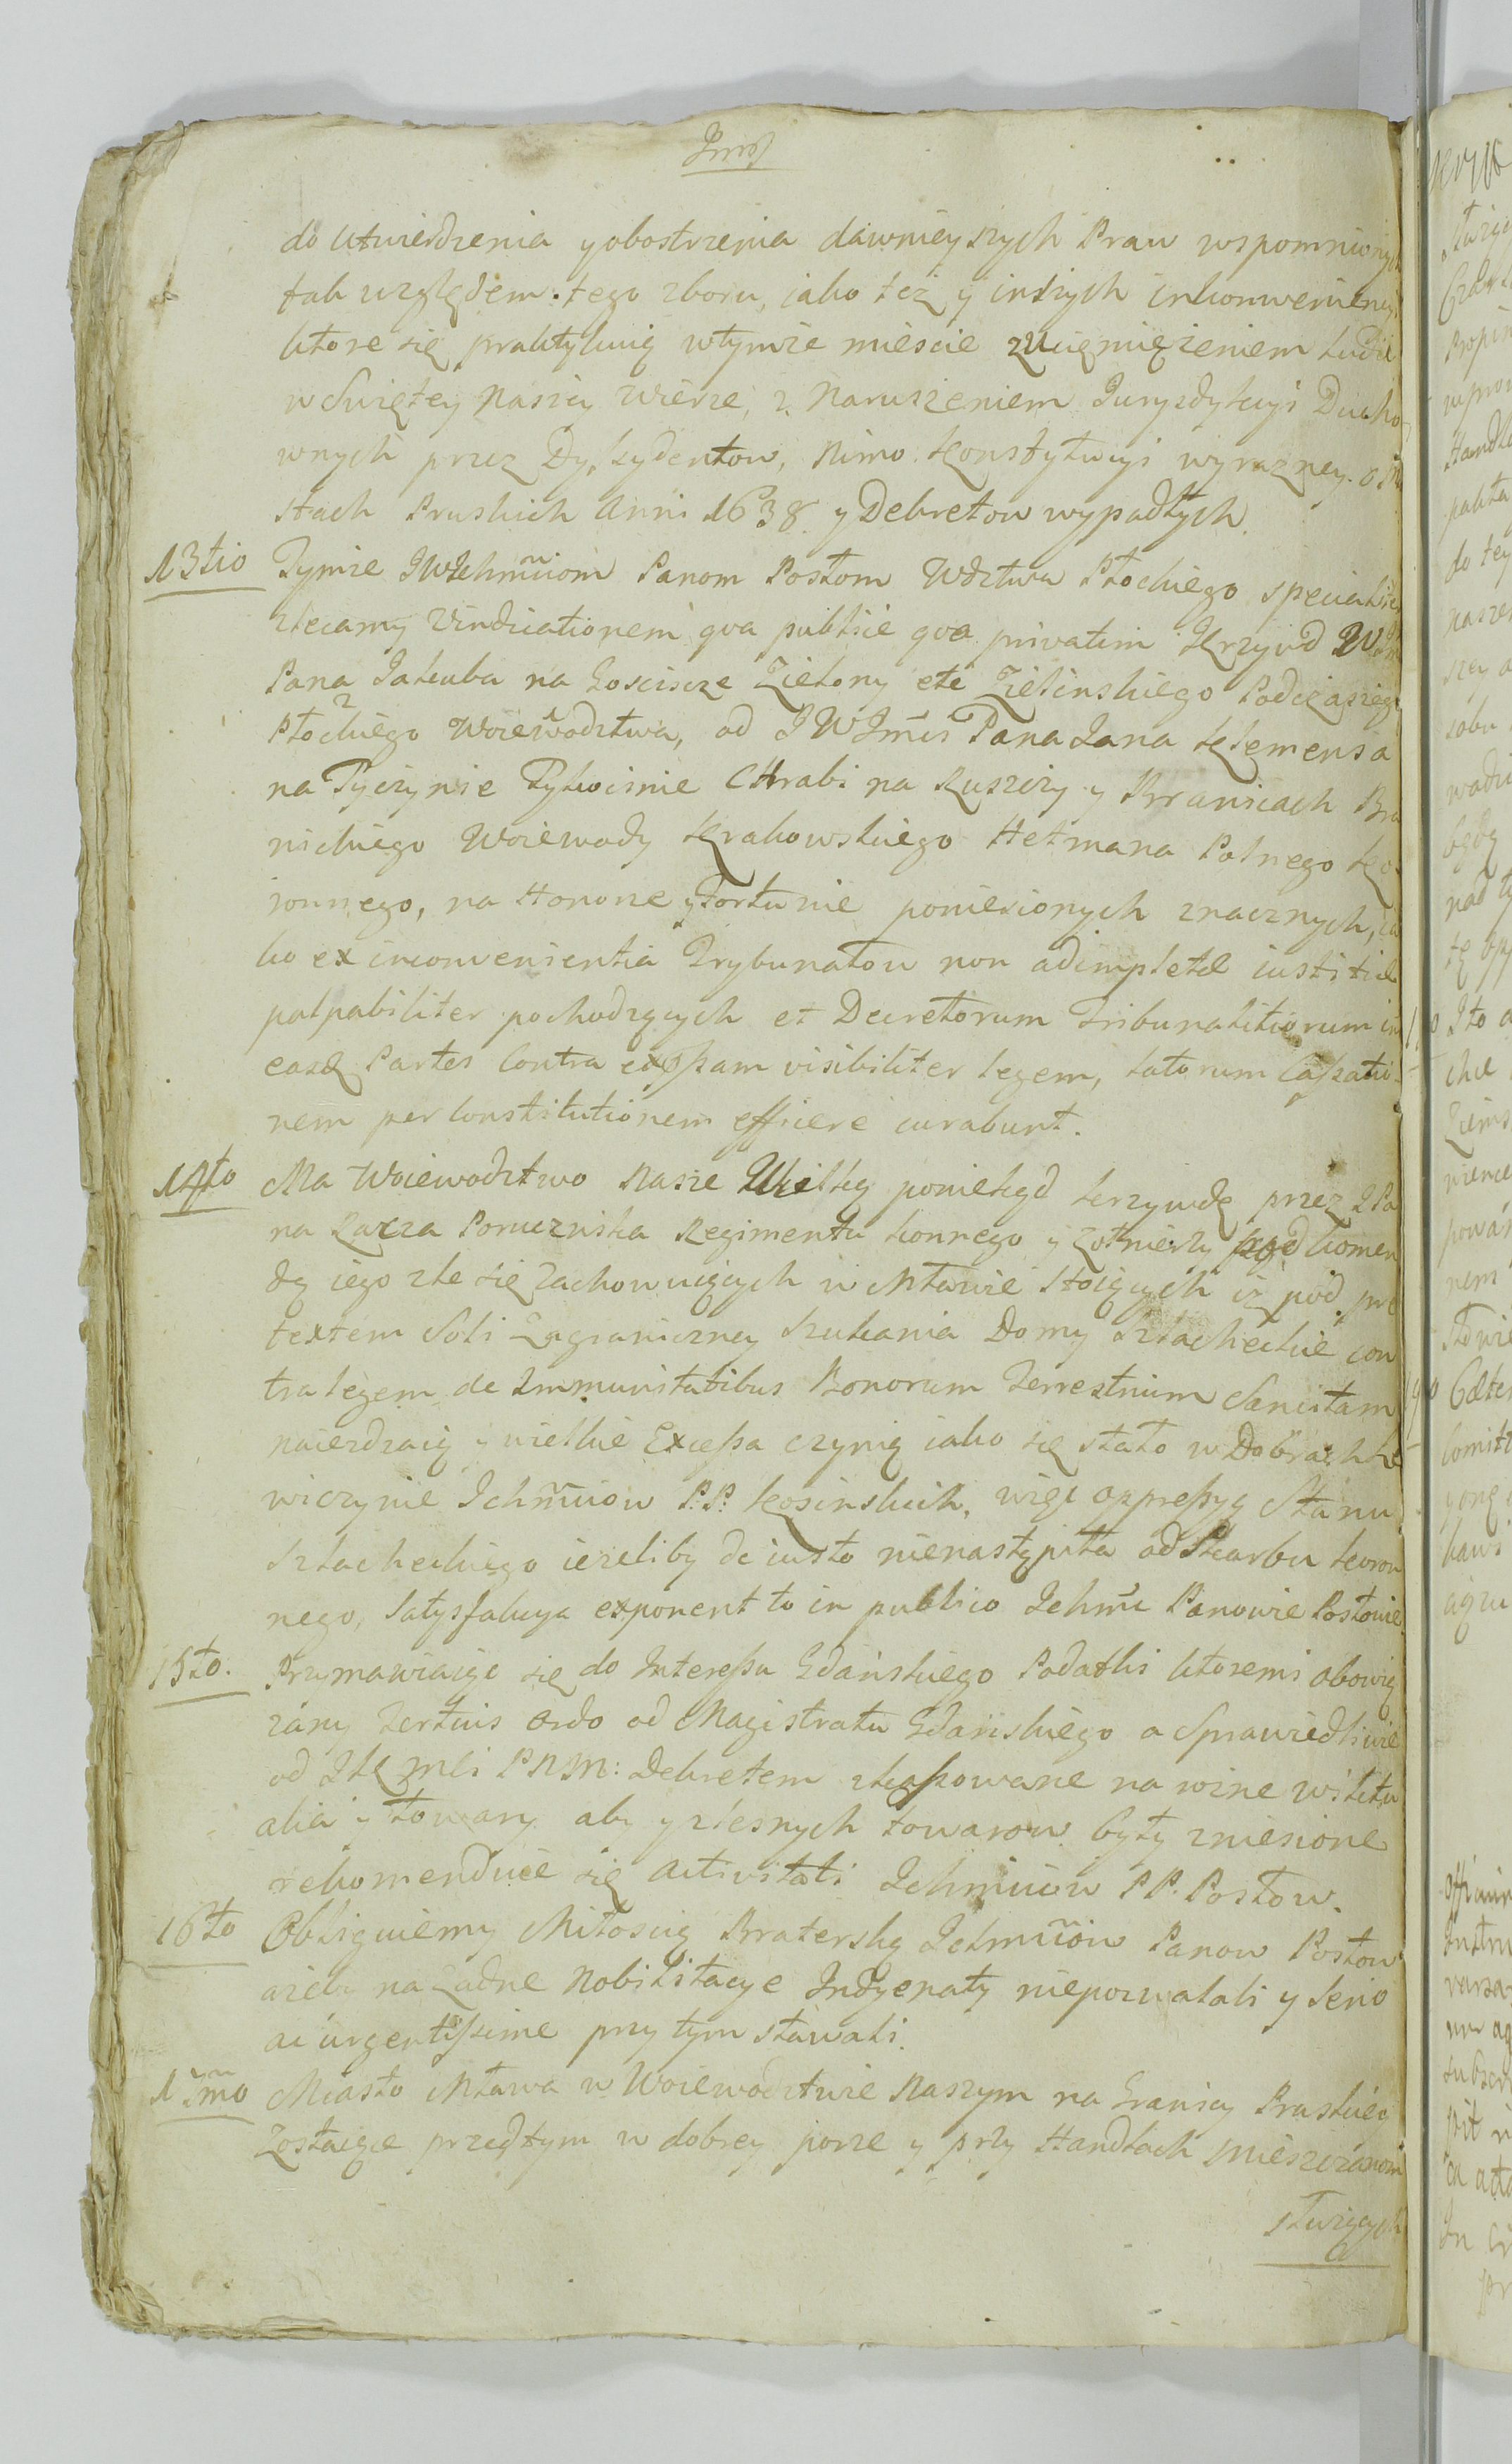 do utwierdzenia y obostrzenia dawnieyszych Praw wspomnionych
tak względem tego zboru, iako też y inszych inkonweniencyi
ktore się praktykuią wtymże mieście z Ucięmiężeniem ludzi
w Swiętey Naszey wierze, z Naruszeniem Juryzdykcyi Ducho
wnych przez Dyssydentow, Mimo Konstytucyi wyrazney. o Mia
stach Pruskich Anni 1638 y Dekretow wypadłych.
13tio Tymże JWIchmciom Panom Posłom Wdztwa Płockiego specialiter
zlecamy Vindicationem qva publice qva privatim Krzywd W
Pana Jakuba na Gosciszce Zielony etc Zielinskiego Podczaszego
Płockiego Woiewodztwa, od JWJmci Pana Jana Klemensa
na Tyczynie Tykocinie CHrabi na Ruszczy y Branicach Bra
nickiego Woiewody Krakowskiego Hetmana Polnego Ko
ronnego, na Honorze y Fortunie poniesionych znacznych, ia
ko ex inconvenientia Trybunałow non adimpletæ iustitiæ
palpabiliter pochodzących et Decretorum Tribunalitiorum in
easq Partes Contra expssam visibiliter legem, latorum Cassatio-
nem per Constitutionem efficere curabunt.
14to Ma Woiewodztwo Nasze Wielką poniekąd krzywdę przez JPa
na Porucznika Regimentu konnego y Zołnierzy pod komen
dą iego zle się zachowuiących w Mławie stoiących iż pod pre
textem Soli Zagraniczney Szukania Domy Szlacheckie con
tra legem de Immunitatibus Bonorum Terrestrium Sancitam
naiezdzaią y wielkie Excessa czynią iako się stało w Dobrach
wiczynie Ichmciow P.P. Kosinskich, więc oppressyą Stanu
Szlacheckiego ieżeliby de iusto nienastąpiła od Skarbu koron
nego, Satysfakcya exponent to in publico Ichmc Panowie Posłowie
15to. Przymawiaiąc się do Interessu Gdańskiego Podatki ktoremi obowią
zany Tertius Ordo od Magistratu Gdańskiego a Sprawiedliwie
od JKMci PNM: Dekretem skassowane na wine wiktu
alia y towary aby y zlesnych towarow były zniesione
rekomenduie się activitati Ichmciow PP. Posłow.
16to Obliguiemy Miłoscią Braterską Ichmciow Panow Posłow
ażeby na Zadne Nobilitacye Indygenaty niepozwalali y serio
ac urgentissime przy tym stawali.
17mo Miasto Mława w Woiewodztwie Naszym na Granicy Pruskiey
Zostaiące przedtym w dobrey porze y przy Handlach mieszczanom
służących